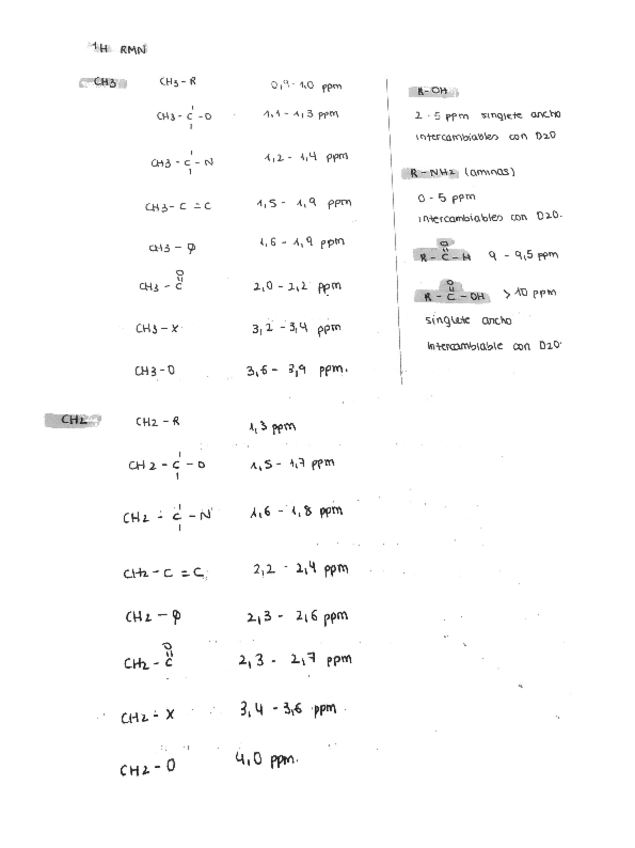 1H RMN
CH3 CH3-R 0,9-1,0 ppm
CH3-C-O 1,1-1,3 ppm
CH3-C-N 1,2-1,4 ppm
CH3-C=C 1,5-1,9 ppm
CH3-φ 1,6-1,9 ppm
O
CH3-C 2,0-2,2 ppm
CH3-X 3,2-3,4 ppm
CH3-O 3,6-3,9 ppm.
R-OH
2-5 ppm singlete ancho
intercambiables con D2O
R-NH2 (aminas)
0-5 ppm
intercambiables con D2O.
O
R-C-H 9-9,5 ppm
O
R-C-OH >10 ppm
singlete ancho
intercambiable con D2O.
CH2 CH2-R 1,3 ppm
CH2-C-O 1,5-1,7 ppm
CH2-C-N 1,6-1,8 ppm
CH2-C=C 2,2-2,4 ppm
CH2-φ 2,3-2,6 ppm
O
CH2-C 2,3-2,7 ppm
CH2-X 3,4-3,6 ppm
CH2-O 4,0 ppm.